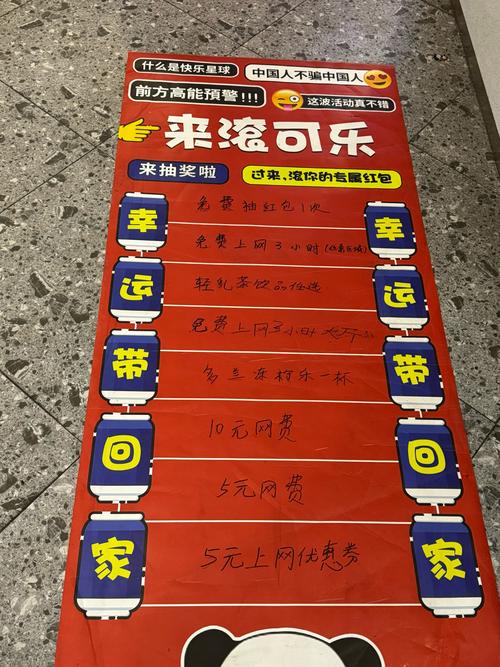 什么是快乐星球
中国人不骗中国人
前方高能預警!!!
这波活动真不错
来滚可乐
来抽奖啦
过来,滚你的专属红包
幸
免费抽红包1次
幸
免费上网3小时
运
轻乳茶饮品任选
运
免费上网3小时
带
多兰冻柯乐一杯
带
回
10元网费
回
5元网费
家
5元上网优惠券
家